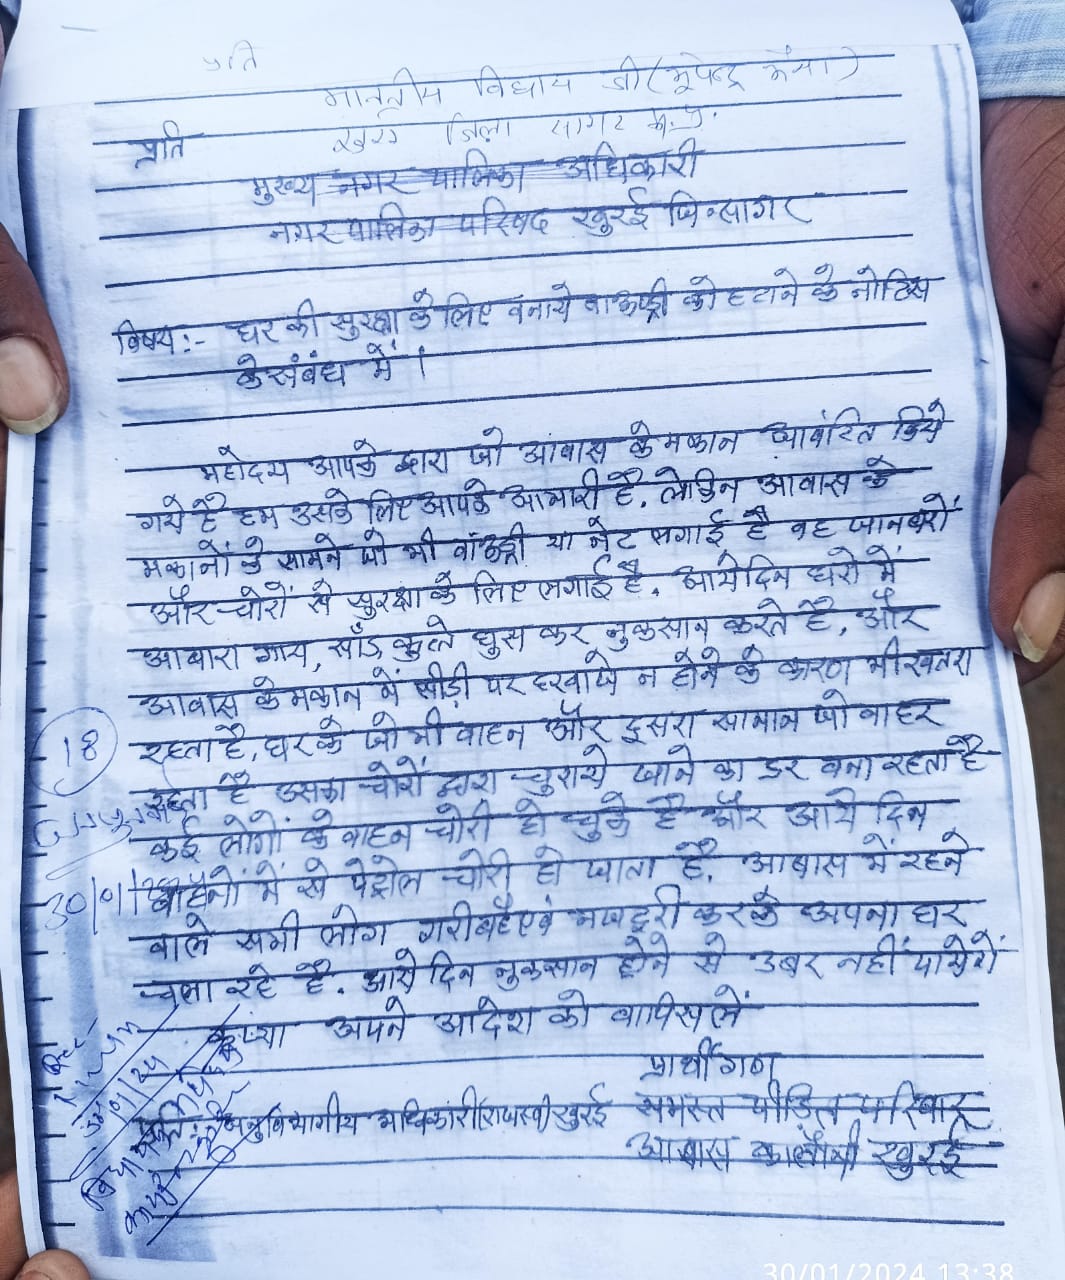 प्रति
माननीय विधाय जी (भूपेन्द्र भैया)
खुरई जिला सागर म.प्र.
प्रति
मुख्य नगर पालिका अधिकारी
नगर पालिका परिषद खुरई जि. सागर
विषय:- घर की सुरक्षा के लिए बनाये बाऊन्ड्री को हटाने के नोटिस
के संबंध में।
महोदय आपके द्वारा जो आवास के मकान आवंटित किये
गये है हम उसके लिए आपके आभारी है. लेकिन आवास के
मकानों के सामने जो भी बांउड्री या नेट लगाई है वह जानवरों
और चोरों से सुरक्षा के लिए लगाई है. आये दिन घरो में
आबारा गाय, साँड, कुत्ते घुस कर नुकसान करते है. और
आवास के मकान में सीड़ी पर दरवाजे न होने के कारण भी खतरा
रहता है, घर के जो भी वाहन और दुसरा सामान जो बाहर
रहता है उसका चोरों द्वारा चुराये जाने का डर बना रहता है
कई लोगों के वाहन चोरी हो चुके है और आये दिन
बाहनों में से पेट्रोल चोरी हो जाता है. आबास में रहने
वाले सभी लोग गरीब है एवं मजदूरी करके अपना घर
चला रहे है. आये दिन नुकसान होने से उबर नहीं पायेगें
कृप्या अपने आदेश को वापिस लें
प्रार्थीगण
समस्त पीड़ित परिवार
आबास कालोनी खुरई
प्रति:- अनुविभागीय अधिकारी (राजस्व) खुरई
18
30/01/
30/01/2024 13:38